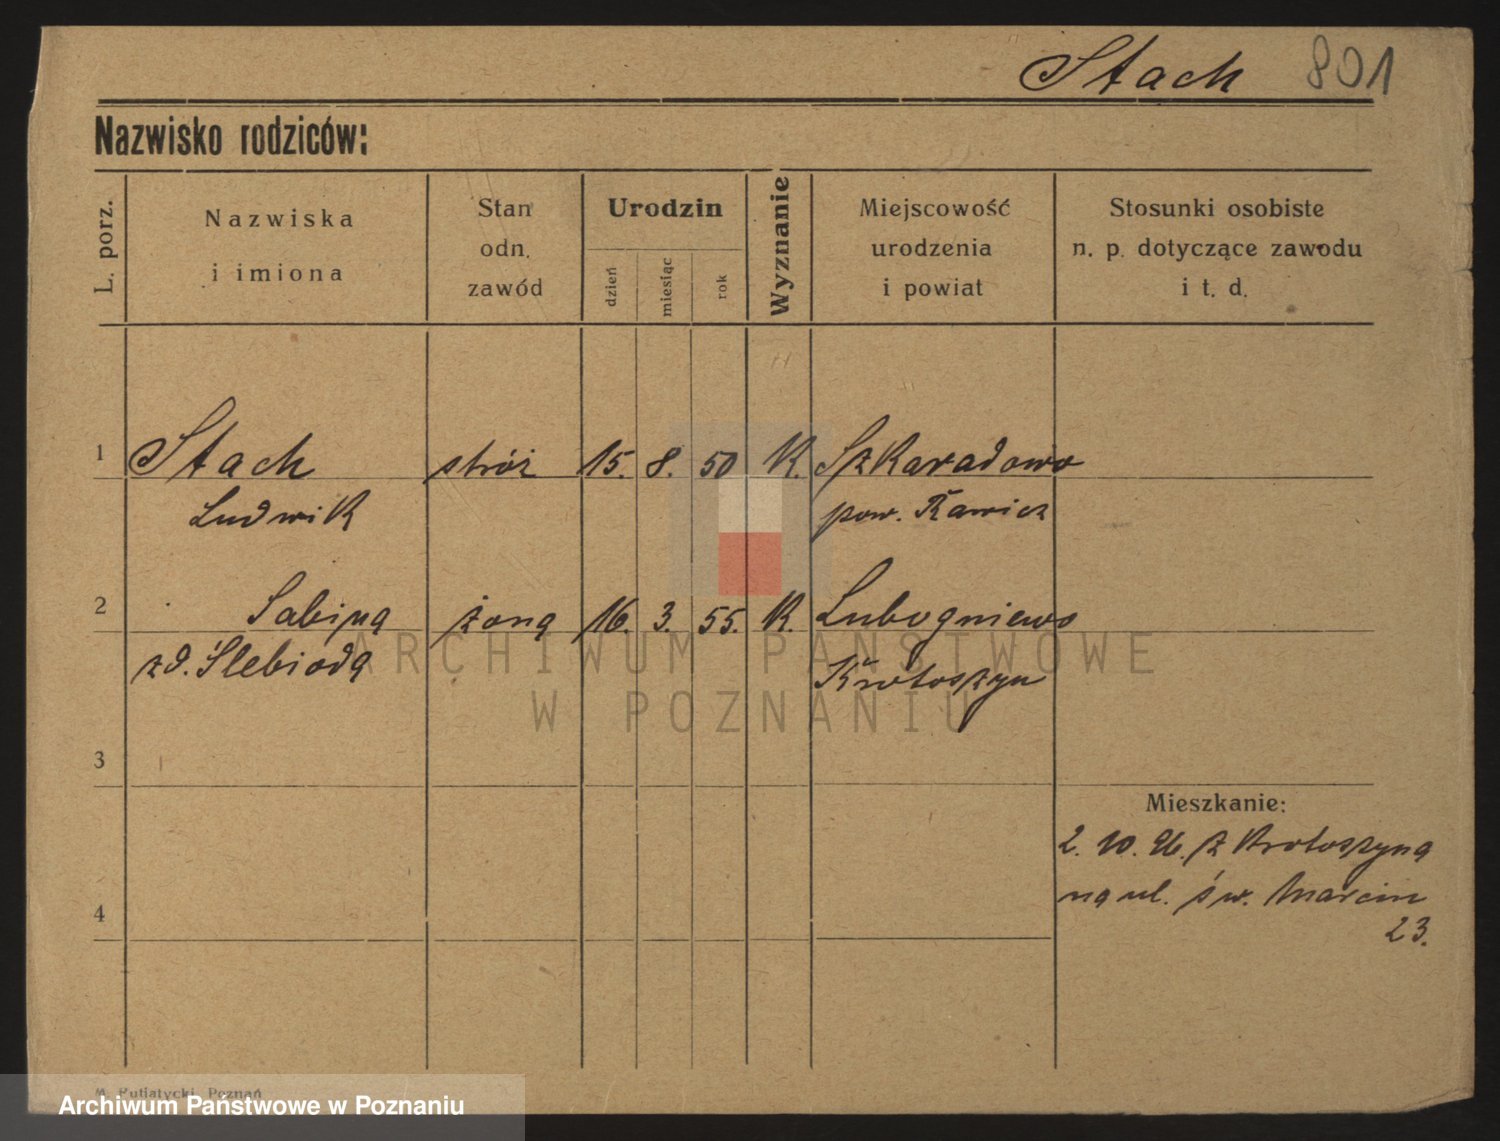 Stach 801
Nazwisko rodziców:
L. porz.
Nazwiska
i imiona
Stan
odn.
zawód
Urodzin
dzień
miesiąc
rok
Wyznanie
Miejscowość
urodzenia
i powiat
Stosunki osobiste
n. p. dotyczące zawodu
i t. d.
1 Stach stróż 15. 8. 50 K. Szkaradowo
Ludwik pow. Rawicz
2 Sabina żona 16. 3. 55. K. Lubogniewo
zd. Ślebioda Krotoszyn
3
Mieszkanie:
2. 10. 26. z Krotoszyna
na ul. św. Marcin
23.
4
ARCHIWUM PAŃSTWOWE
W POZNANIU
Poznań
Archiwum Państwowe w Poznaniu